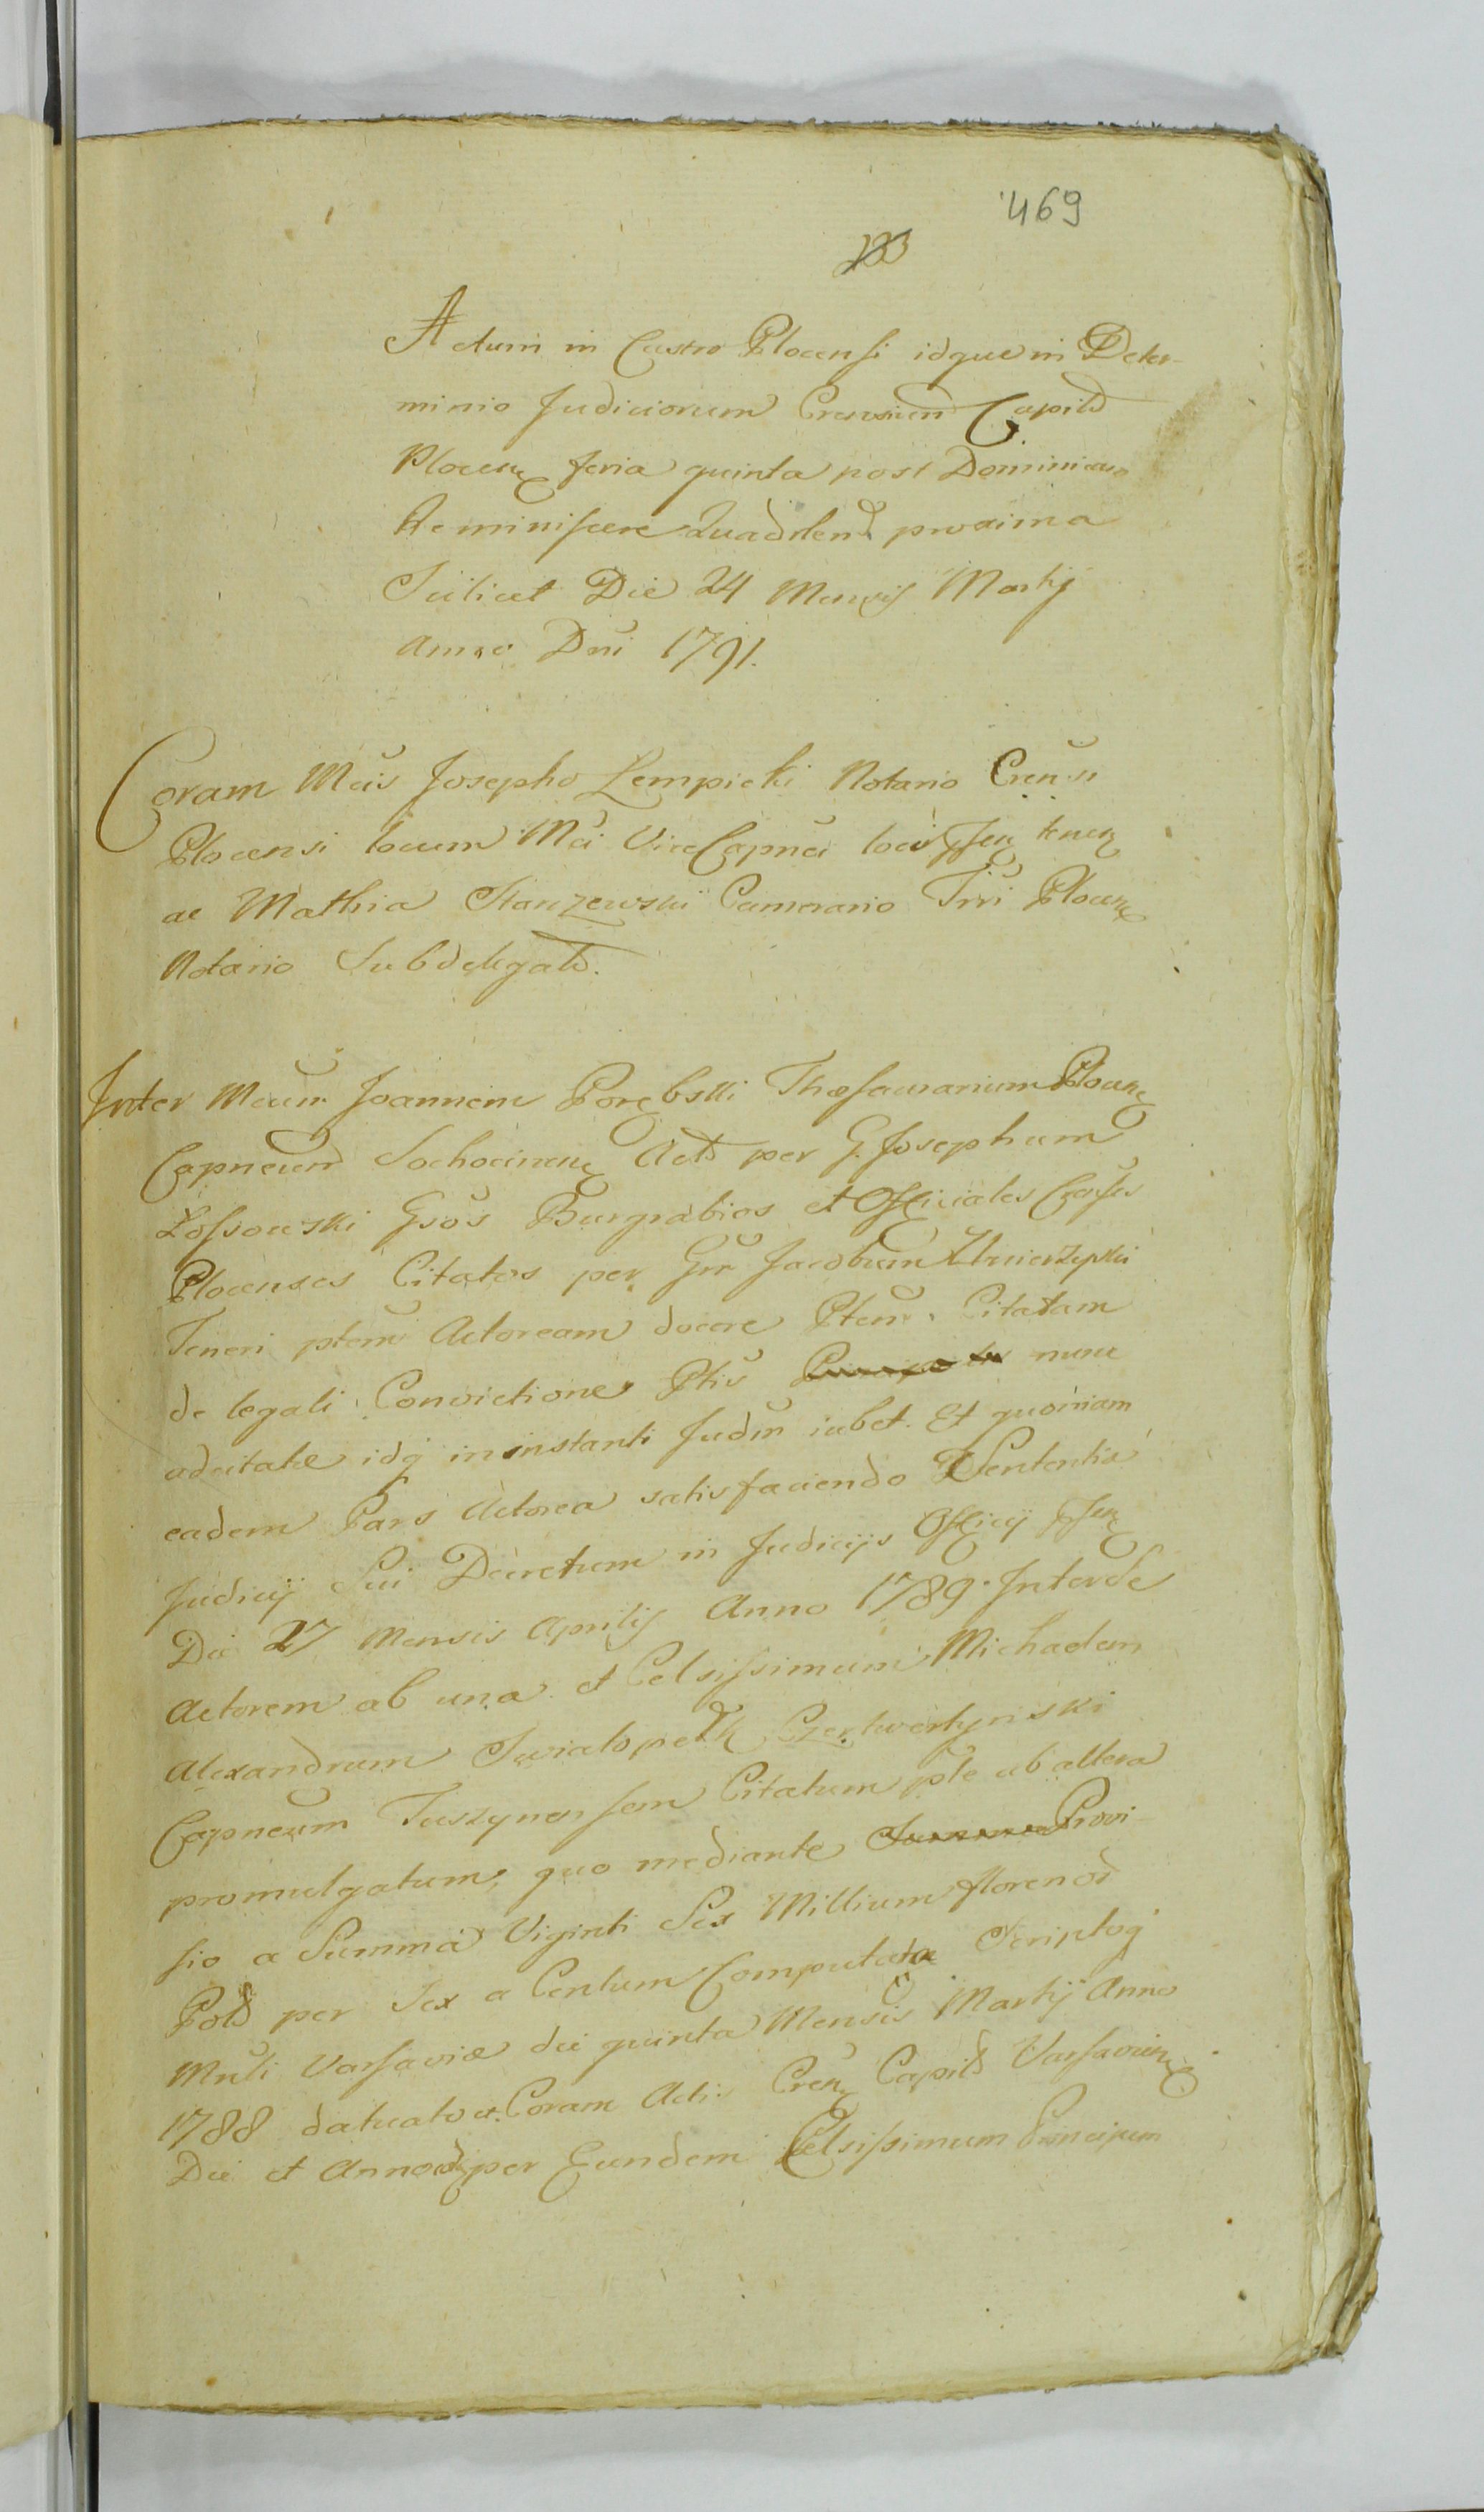 469
Actum in Castro Plocensi idque in Deter-
minio Judiciorum Crensium Capitl
Plocen feria quinta post Dominicam
Reminiscere Quadrlem proxima
Scilicet Die 24 Mensis Martij
Anno Dni 1791.
Coram Mcis Josepho Lempicki Notario Crensi
Plocensi locum Mci ViceCapnei loci psen tenen
ac Mathia Staniszewski Camerario Trri Plocen
Notario Subdelegato.
Inter Mcum Joannem Porębski Thesaurarium Plocen
Capneum Sochocinen Act per G. Josephum
Łossowski Gsos Burgrabios et Officiales Casses
Plocenses Citatos per Gm Jacobum
Teneri ptem Actoream docere Ptem Citatam
de legali Convictione Ptis nunc
adcitatae idq in instanti Judm iubet. Et quoniam
eadem Pars Actorea satisfaciendo Sententiae
Judicij Sui Decretum in Judicijs Officij psen
Die 27 Mensis Aprilis Anno 1789. Inter se
Actorem ab una et Celsissimum Michaelem
Alexandrum Swiatopełk Czetwertynski
Capneum Tuszynensem Citatum pte ab altera
promulgatum, quo mediante Summa Provi-
sio a Summa Viginti Sex Millium florenor
Pol per Sex a Centum Computata Scriptoq
Mnli Varsaviae die quinta Mensis Martij Anno
1788 datuato et Coram Actis Cren Capitl Varsavien
Die et Anno eodem per Eundem Celsissimum Principem